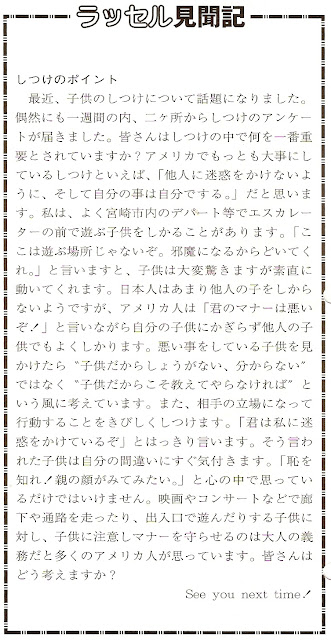 ラッセル見聞記
しつけのポイント
最近、子供のしつけについて話題になりました。
偶然にも一週間の内、二ヶ所からしつけのアンケー
トが届きました。皆さんはしつけの中で何を一番重
要とされていますか？アメリカでもっとも大事にし
ているしつけといえば、「他人に迷惑をかけないよ
うに、そして自分の事は自分でする。」だと思いま
す。私は、よく宮崎市内のデパート等でエスカレー
ターの前で遊ぶ子供をしかることがあります。「こ
こは遊ぶ場所じゃないぞ。邪魔になるからどいてく
れ。」と言いますと、子供は大変驚きますが素直に
動いてくれます。日本人はあまり他人の子をしから
ないようですが、アメリカ人は「君のマナーは悪い
ぞ！」と言いながら自分の子供にかぎらず他人の子
供でもよくしかります。悪い事をしている子供を見
かけたら〝子供だからしょうがない、分からない〟
ではなく〝子供だからこそ教えてやらなければ〟と
いう風に考えています。また、相手の立場になって
行動することをきびしくしつけます。「君は私に迷
惑をかけているぞ」とはっきり言います。そう言わ
れた子供は自分の間違いにすぐ気付きます。「恥を
知れ！親の顔がみてみたい。」と心の中で思ってい
るだけではいけません。映画やコンサートなどで廊
下や通路を走ったり、出入口で遊んだりする子供に
対し、子供に注意しマナーを守らせるのは大人の義
務だと多くのアメリカ人が思っています。皆さんは
どう考えますか？
See you next time！